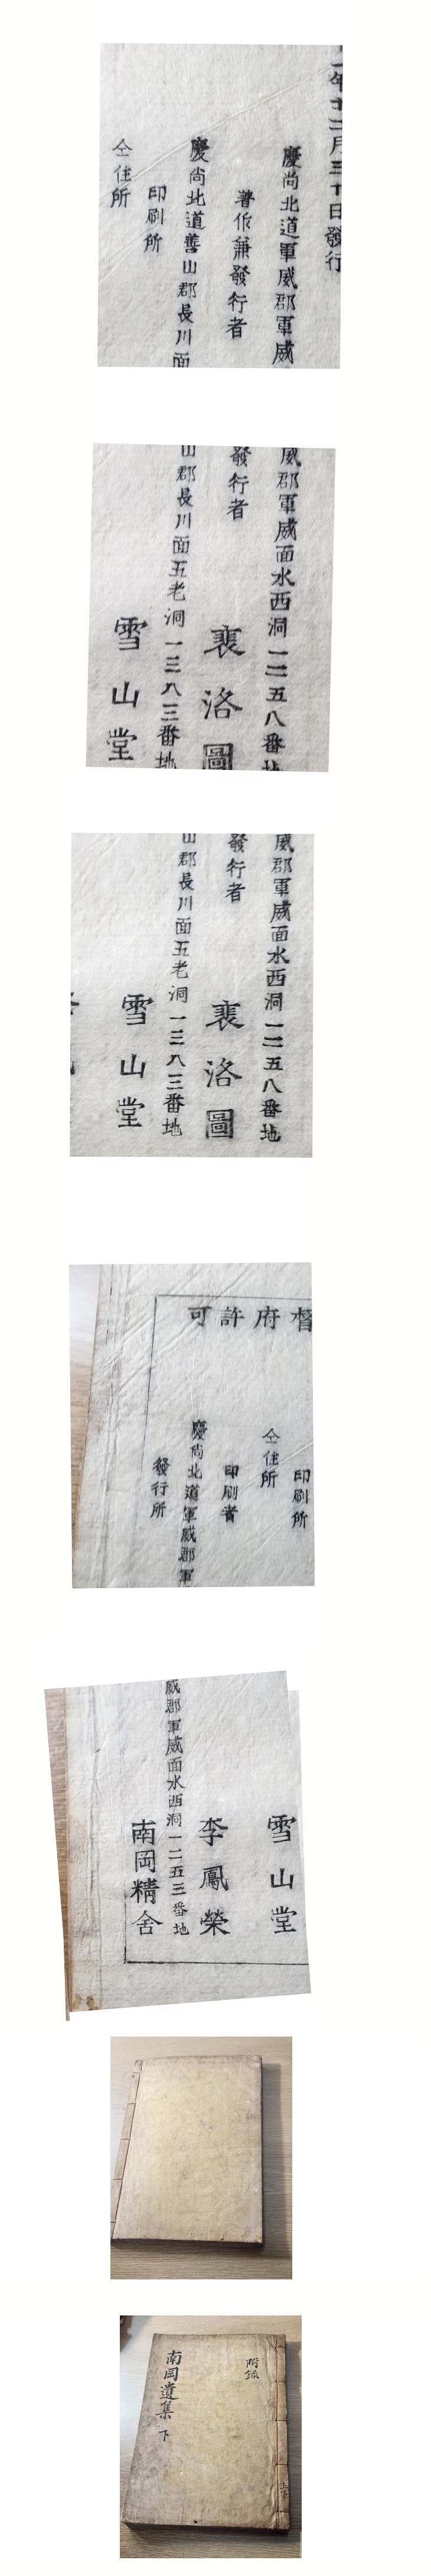 年十二月三十日發行
慶尚北道軍威郡軍威
著作兼發行者
慶尚北道善山郡長川面
印刷所
仝住所
威郡軍威面水西洞一二五八番地
發行者
裵洛圖
山郡長川面五老洞一三八三番地
雪山堂
威郡軍威面水西洞一二五八番地
發行者
裵洛圖
山郡長川面五老洞一三八三番地
雪山堂
督府許可
印刷所
仝住所
印刷者
慶尚北道軍威郡軍
發行所
雪山堂
李鳳榮
威郡軍威面水西洞一二五三番地
南岡精舍
附錄
南岡遺集 下